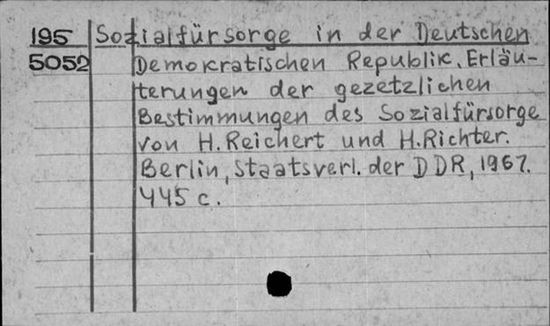 195 Sozialfürsorge in der Deutschen
5052 Demokratischen Republik. Erläu-
terungen der gezetzlichen
Bestimmungen des Sozialfürsorge
von H. Reichert und H. Richter.
Berlin, Staatsverl. der DDR, 1967.
445 c.